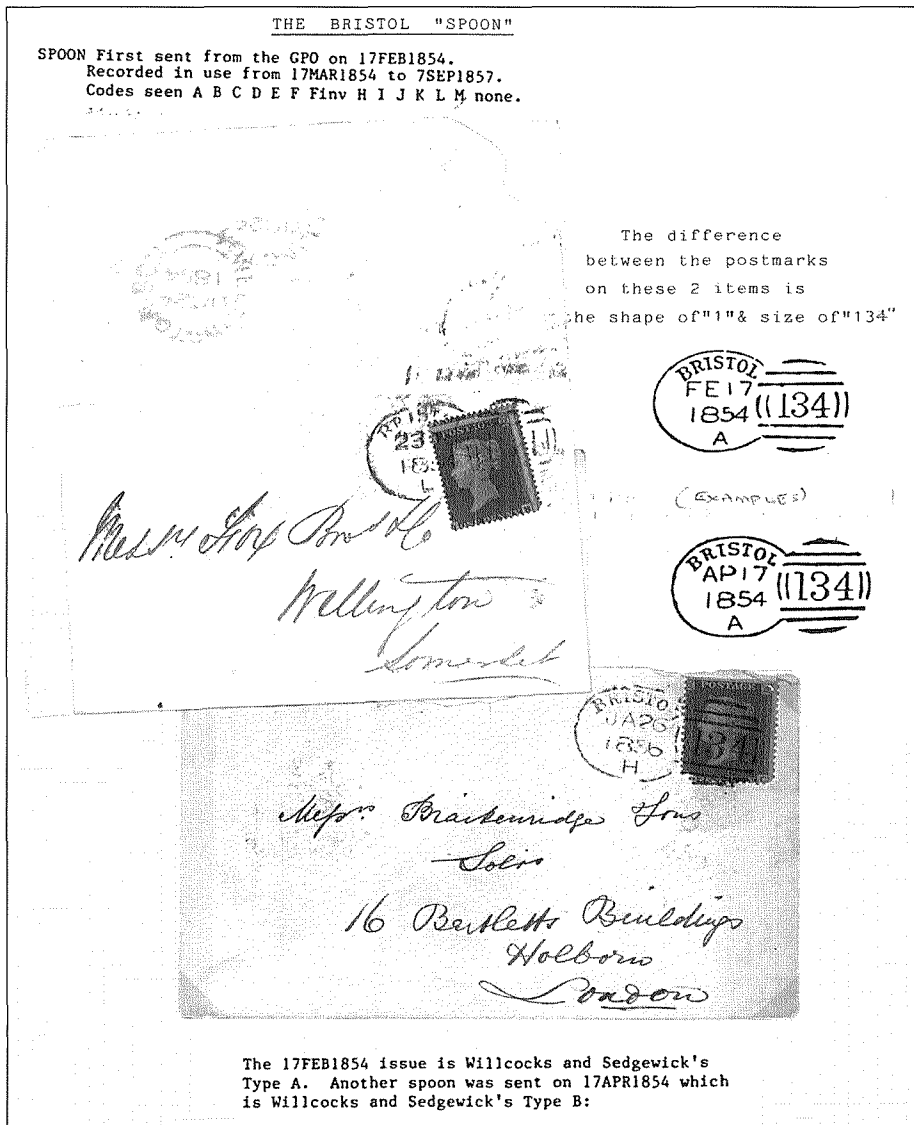 THE BRISTOL "SPOON"
SPOON First sent from the GPO on 17FEB1854.
Recorded in use from 17MAR1854 to 7SEP1857.
Codes seen A B C D E F Finv H I J K L M none.
The difference
between the postmarks
on these 2 items is
he shape of"1"& size of"134"
BRISTOL
FE 17
1854 134
A
(EXAMPLES)
BRISTOL
AP 17
1854 134
A
23
L
Messrs Fox Bros & Co
Wellington
Somerset
BRISTO
JA 26
1856 134
H
Messrs Braikenridge Sons
Solrs
16 Bartletts Buildings
Holborn
London
The 17FEB1854 issue is Willcocks and Sedgewick's
Type A. Another spoon was sent on 17APR1854 which
is Willcocks and Sedgewick's Type B: